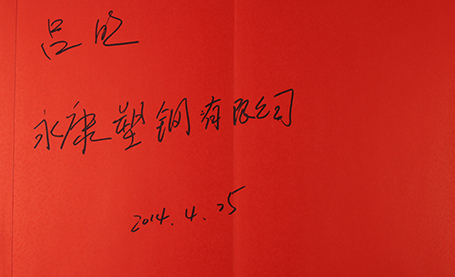 吕
永康塑钢有限公司
2014.4.25